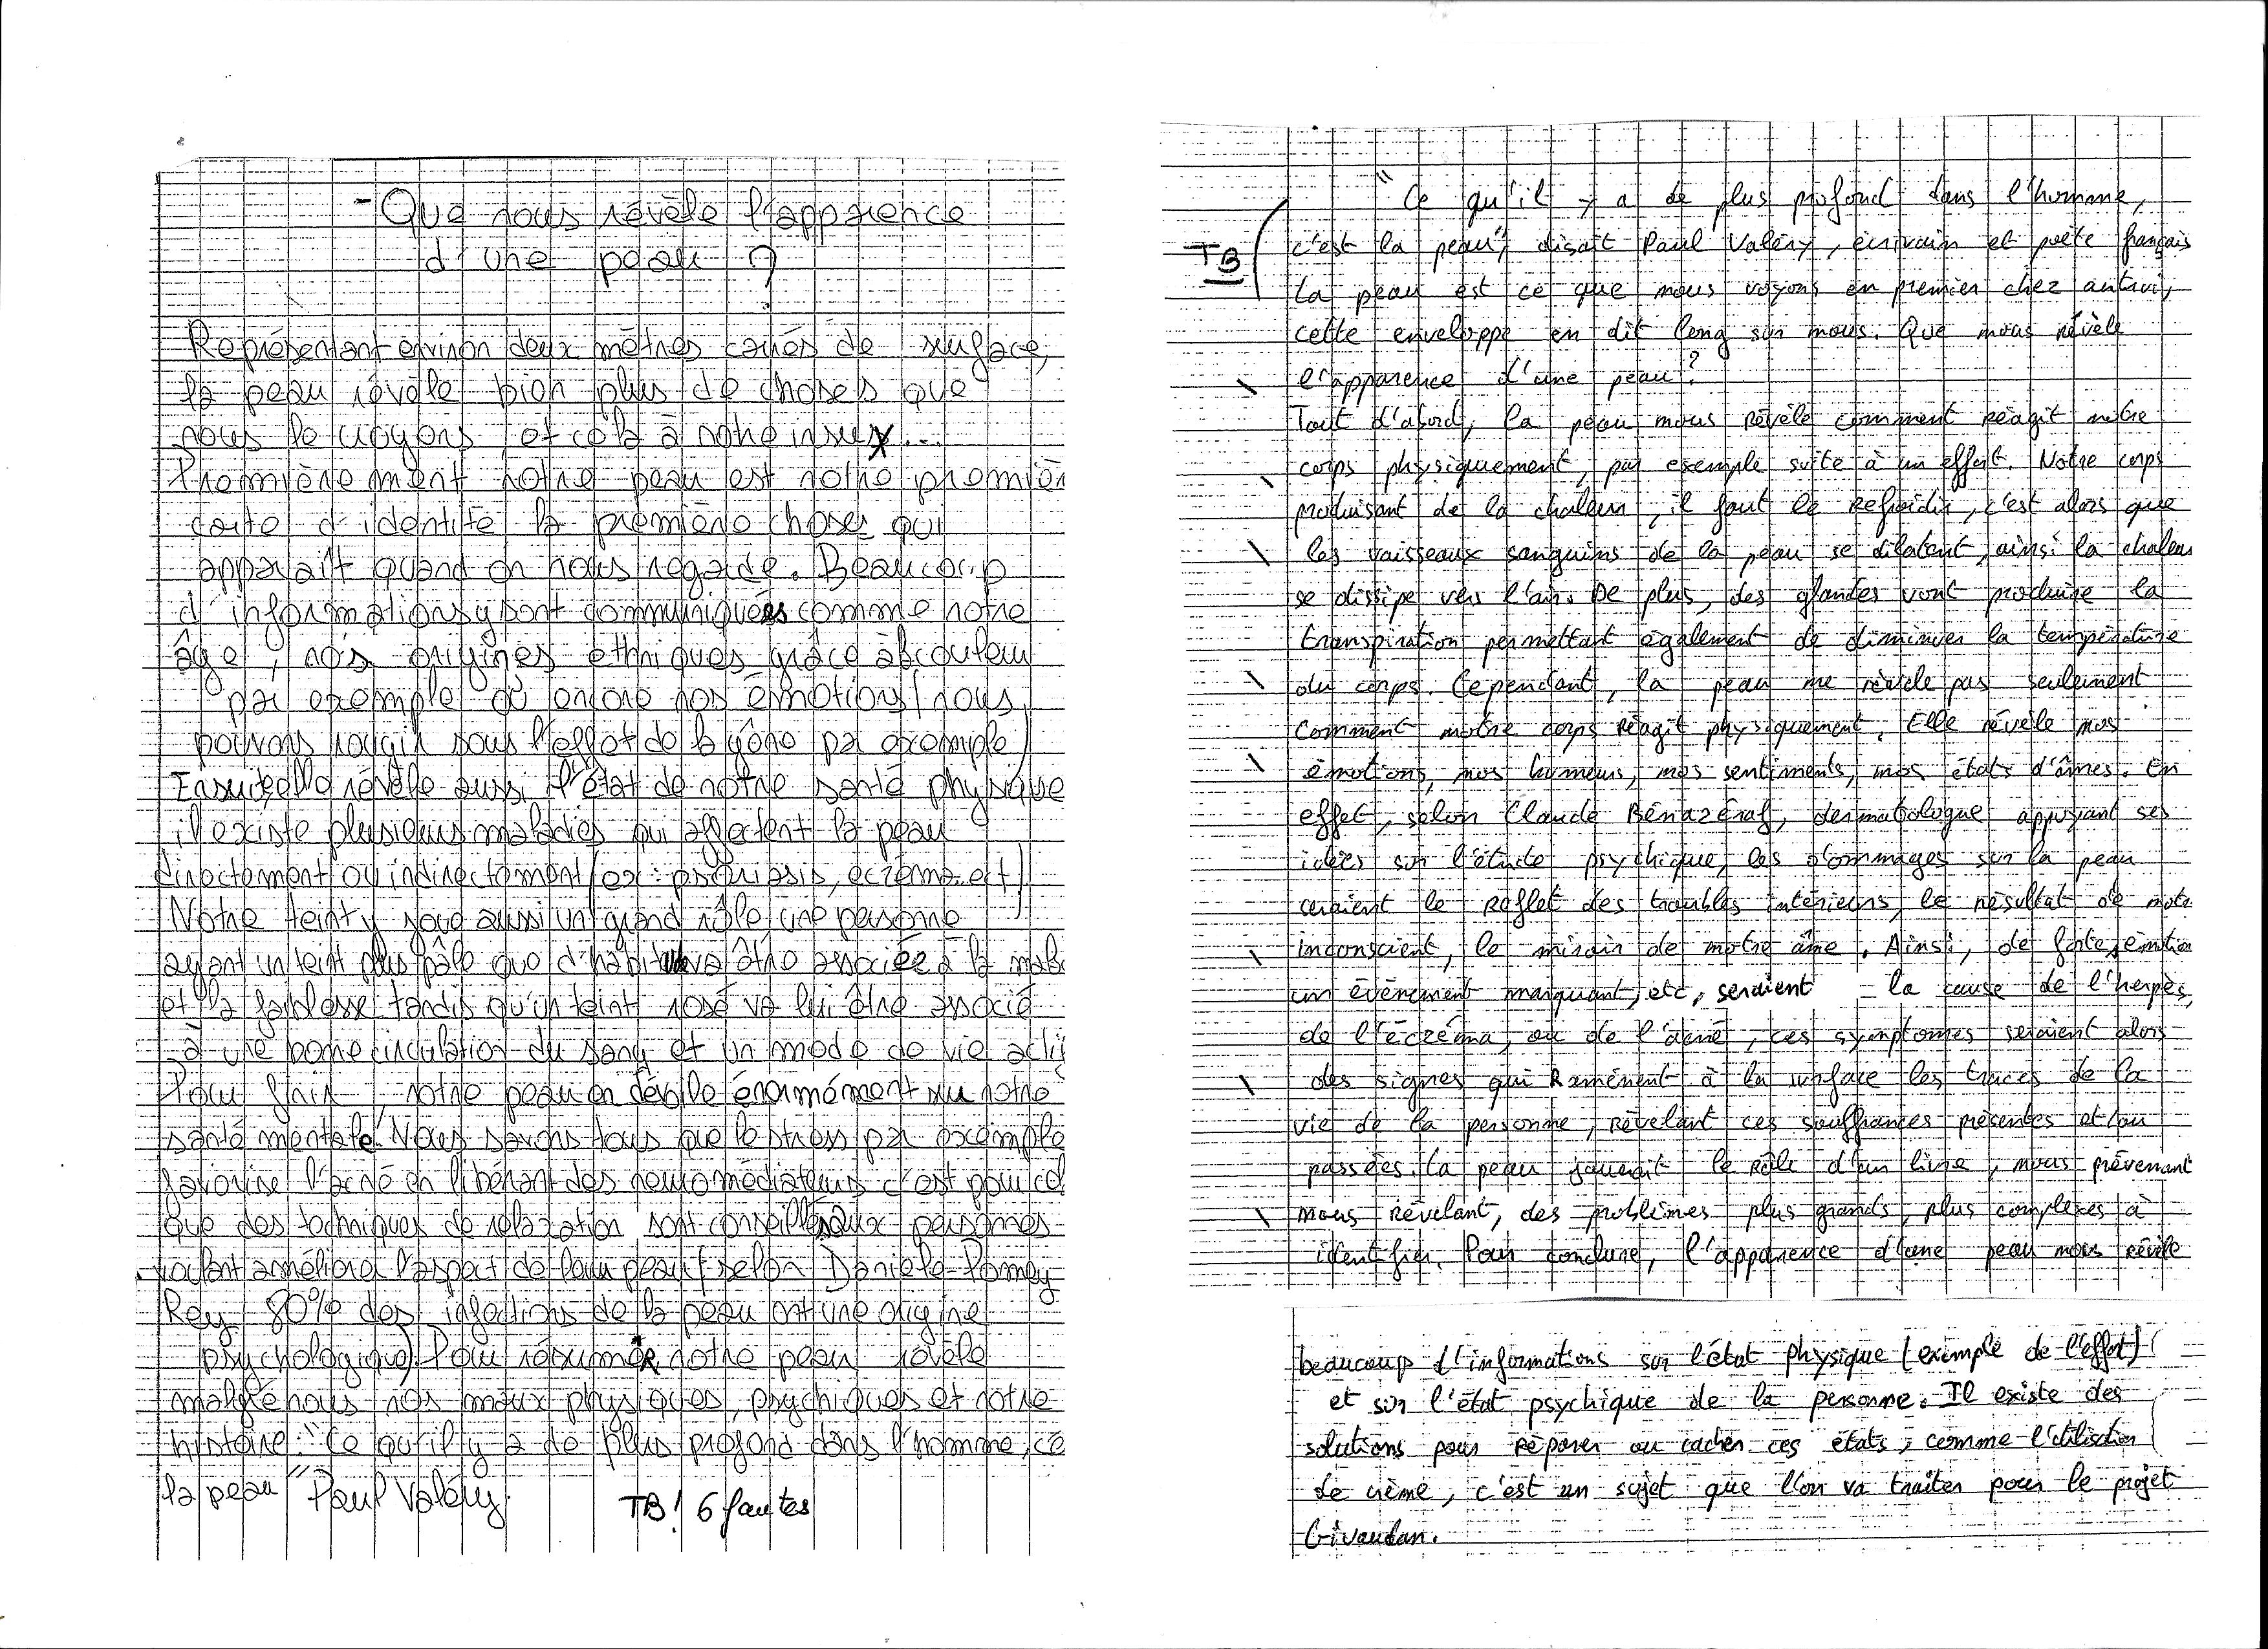 - Que nous révèle l'apparence
d'une peau ?
Représentant environ deux mètres carrés de surface,
la peau révèle bien plus de choses que
nous le croyons, et cela à notre insu...
Premièrement notre peau est notre premièr
carte d'identité, la première choses qui
apparaît quand on nous regarde. Beaucoup
d'informations y sont communiquées comme notre
âge, nos origines ethniques grâce à la couleur
par exemple ou encore nos émotions (nous
pouvons rougir sous l'effet de la gêne par exemple)
Ensuite, elle révèle aussi l'état de notre santé physique
il existe plusieurs maladies qui affectent la peau
directement ou indirectement (ex : psoriasis, eczéma..ect)
Notre teint y joue aussi un grand rôle, une personne
ayant un teint plus pâle que d'habitude va être associée à la mala
et la faiblesse tandis qu'un teint rosé va lui être associé
à une bonne circulation du sang et un mode de vie actif
Pour finir, notre peau en dévoile énormément sur notre
santé mentale. Nous savons tous que le stress par exemple
favorise l'acné en libérant des neuromédiateurs c'est pour cel
que des techniques de relaxation sont conseillées aux personnes
voulant améliorer l'aspect de leur peau (selon Danièle Pomey
Rey 80% des infections de la peau ont une origine
psychologique) Pour résumer notre peau révèle
malgré nous nos maux physiques, psychiques et notre
histoire. "Ce qu'il y a de plus profond dans l'homme, ce
la peau" Paul Valéry.
TB! 6 fautes
"Ce qu'il y a de plus profond dans l'homme,
TB
c'est la peau", disait Paul Valéry, écrivain et poète français
La peau est ce que nous voyons en premier chez autrui,
cette enveloppe en dit long sur nous. Que nous révèle
l'apparence d'une peau ?
Tout d'abord, la peau nous révèle comment réagit notre
corps physiquement, par exemple suite à un effort. Notre corps
produisant de la chaleur, il faut le refroidir, c'est alors que
les vaisseaux sanguins de la peau se dilatent, ainsi la chaleur
se dissipe vers l'air. De plus, des glandes vont produire la
transpiration permettant également de diminuer la température
du corps. Cependant, la peau ne révèle pas seulement
comment notre corps réagit physiquement. Elle révèle nos
émotions, nos humeurs, nos sentiments, nos états d'âmes. En
effet, selon Claude Bénazéraf, dermatologue appuyant ses
idées sur l'étude psychique, les dommages sur la peau
seraient le reflet des troubles intérieurs, le résultat de notre
inconscient, le miroir de notre âme. Ainsi, de forte émotion
un évènement marquant, etc, seraient la cause de l'herpès,
de l'eczéma, ou de l'acné, ces symptomes seraient alors
des signes qui ramènent à la surface les traces de la
vie de la personne, révelant ces souffrances présentes et/ou
passées. La peau jouerait le rôle d'un livre, nous prévenant
nous révelant, des problèmes plus grands, plus complexes à
identifier. Pour conclure, l'apparence d'une peau nous révèle
beaucoup d'informations sur l'état physique (exemple de l'effort)
et sur l'état psychique de la personne. Il existe des
solutions pour réparer ou cacher ces états, comme l'utilisation
de crème, c'est un sujet que l'on va traiter pour le projet
Givaudan.